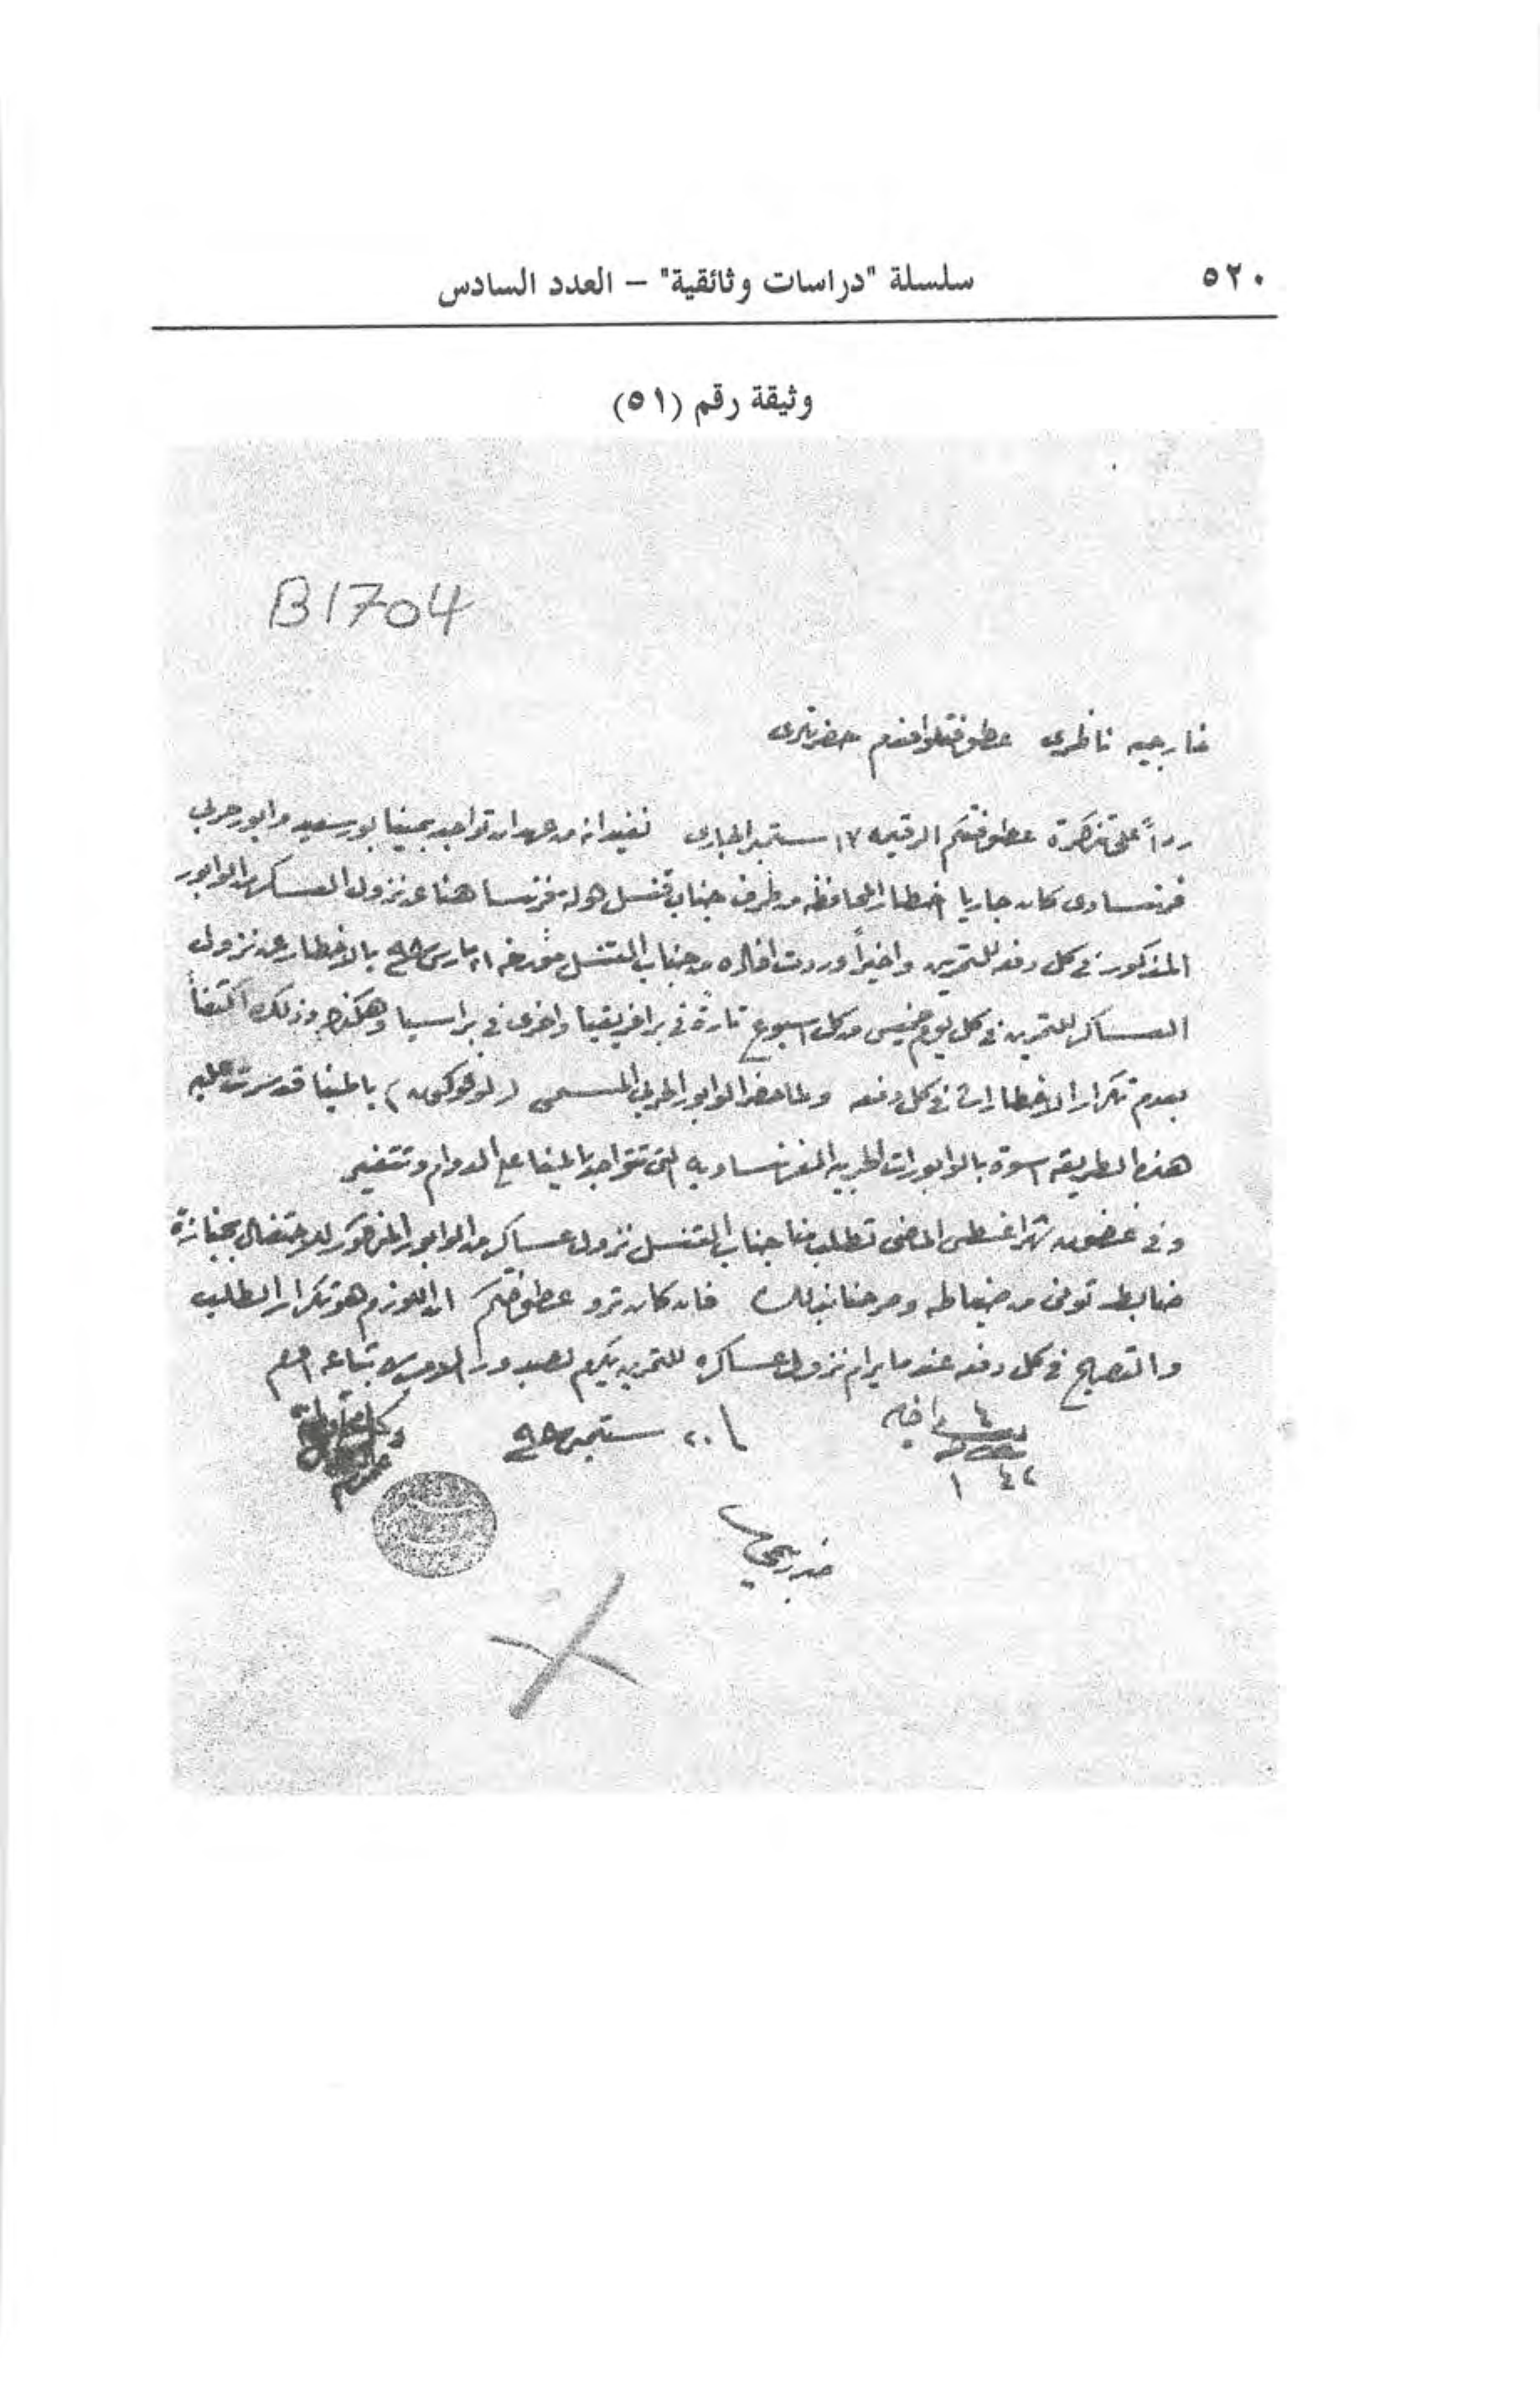 ٥٢٠
سلسلة "دراسات وثائقية" – العدد السادس
وثيقة رقم (٥١)
B1704
خارجيه ناظرى عطوفتلو افندم حضرتلرى
رداً على تذكرة عطوفتكم الرقيمه ١٧ ستمبر الجارى نفيد انه من عهد ان تواجد بمينا بورسعيد وابور حربى
فرنساوى كان جاريا اخطار المحافظه من طرف جناب قنسل دولة فرنسا هنا عن نزول العساكر من الوابور
المذكور فى كل دفعه للتمرين واخيراً وردت افاده من جناب القنسل مؤرخه مارس ٩٨ بالاخطار عن نزول
العساكر للتمرين فى كل يوم خميس من كل اسبوع تارةً فى بر افريقيا واخرى فى بر اسيا وهكذا وذلك اكتفاً
بعدم تكرار الاخطارات فى كل دفعه ولما حضر الوابور الحربى المسمى بالمينا قد سرت عليه
هذه الطريقه اسوة بالوابورات الحربيه الفرنساويه التى تتواجد بالمينا على الدوام وتتغير
وفى غضون شهر اغسطس الماضى تطلب منا جناب القنسل نزول عساكر من الوابور المذكور للاحتفال بجنازة
ضابط توفى من ضباطه وصرحنا بذلك فان كان ترو عطوفتكم ان اللزوم هو تكرار الطلب
والتصريح فى كل دفعه عندما يرام نزول عساكره للتمرين يكرم بصدور الامر لاتباعه افندم
٢٠ ستمبر ٩٨